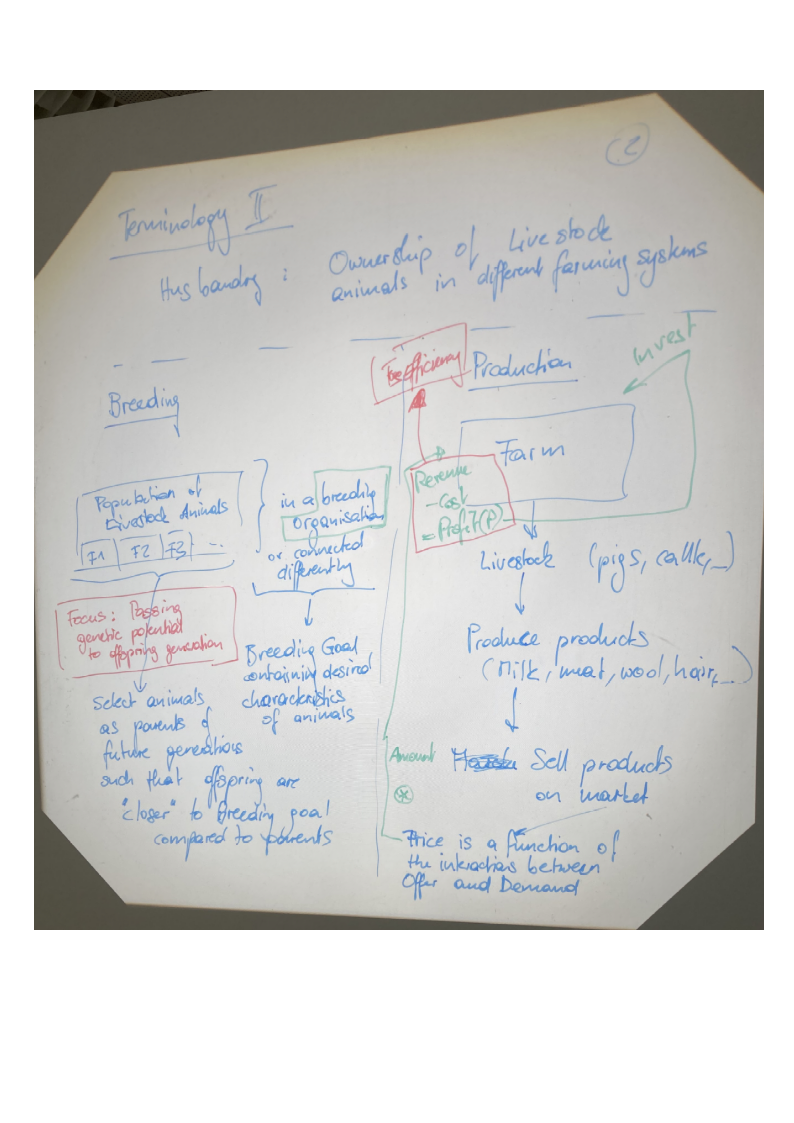 2
Terminology II
Husbandry : Ownership of Livestock
animals in different farming systems
Breeding
Population of
Livestock Animals
F1 F2 F3 ...
in a breeding
organisation
or connected
differently
Focus: Passing
genetic potential
to offspring generation
Select animals
as parents of
future generations
such that offspring are
"closer" to Breeding goal
compared to parents
Breeding Goal
containing desired
characteristics
of animals
efficiency
Production
invest
Farm
Revenue
- Cost
= Profit (P)
Livestock (pigs, cattle, ...)
Produce products
(Milk, meat, wool, hair, ...)
Amount
Sell products
on market
Price is a function of
the interactions between
Offer and Demand